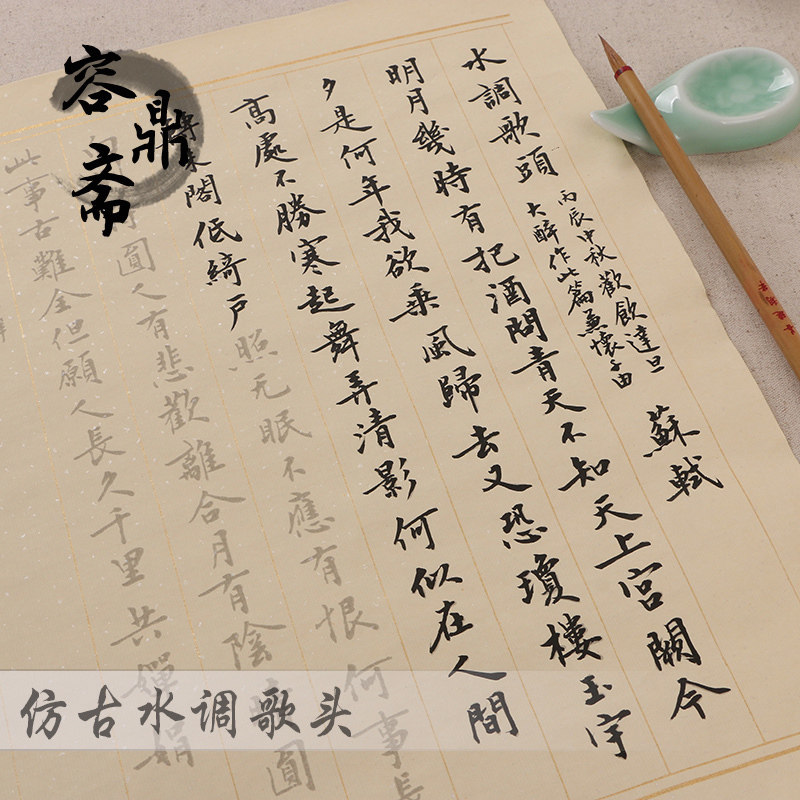 容鼎斋
水調歌頭
丙辰中秋歡飲達旦
大醉作此篇兼懷子由
蘇軾
明月幾時有把酒問青天不知天上宮闕今
夕是何年我欲乘風歸去又恐瓊樓玉宇
高處不勝寒起舞弄清影何似在人間
朱閣低綺戶照无眠不應有恨何事長
圓人有悲歡離合月有陰圓
此事古難全但願人長久千里共嬋娟
仿古水调歌头